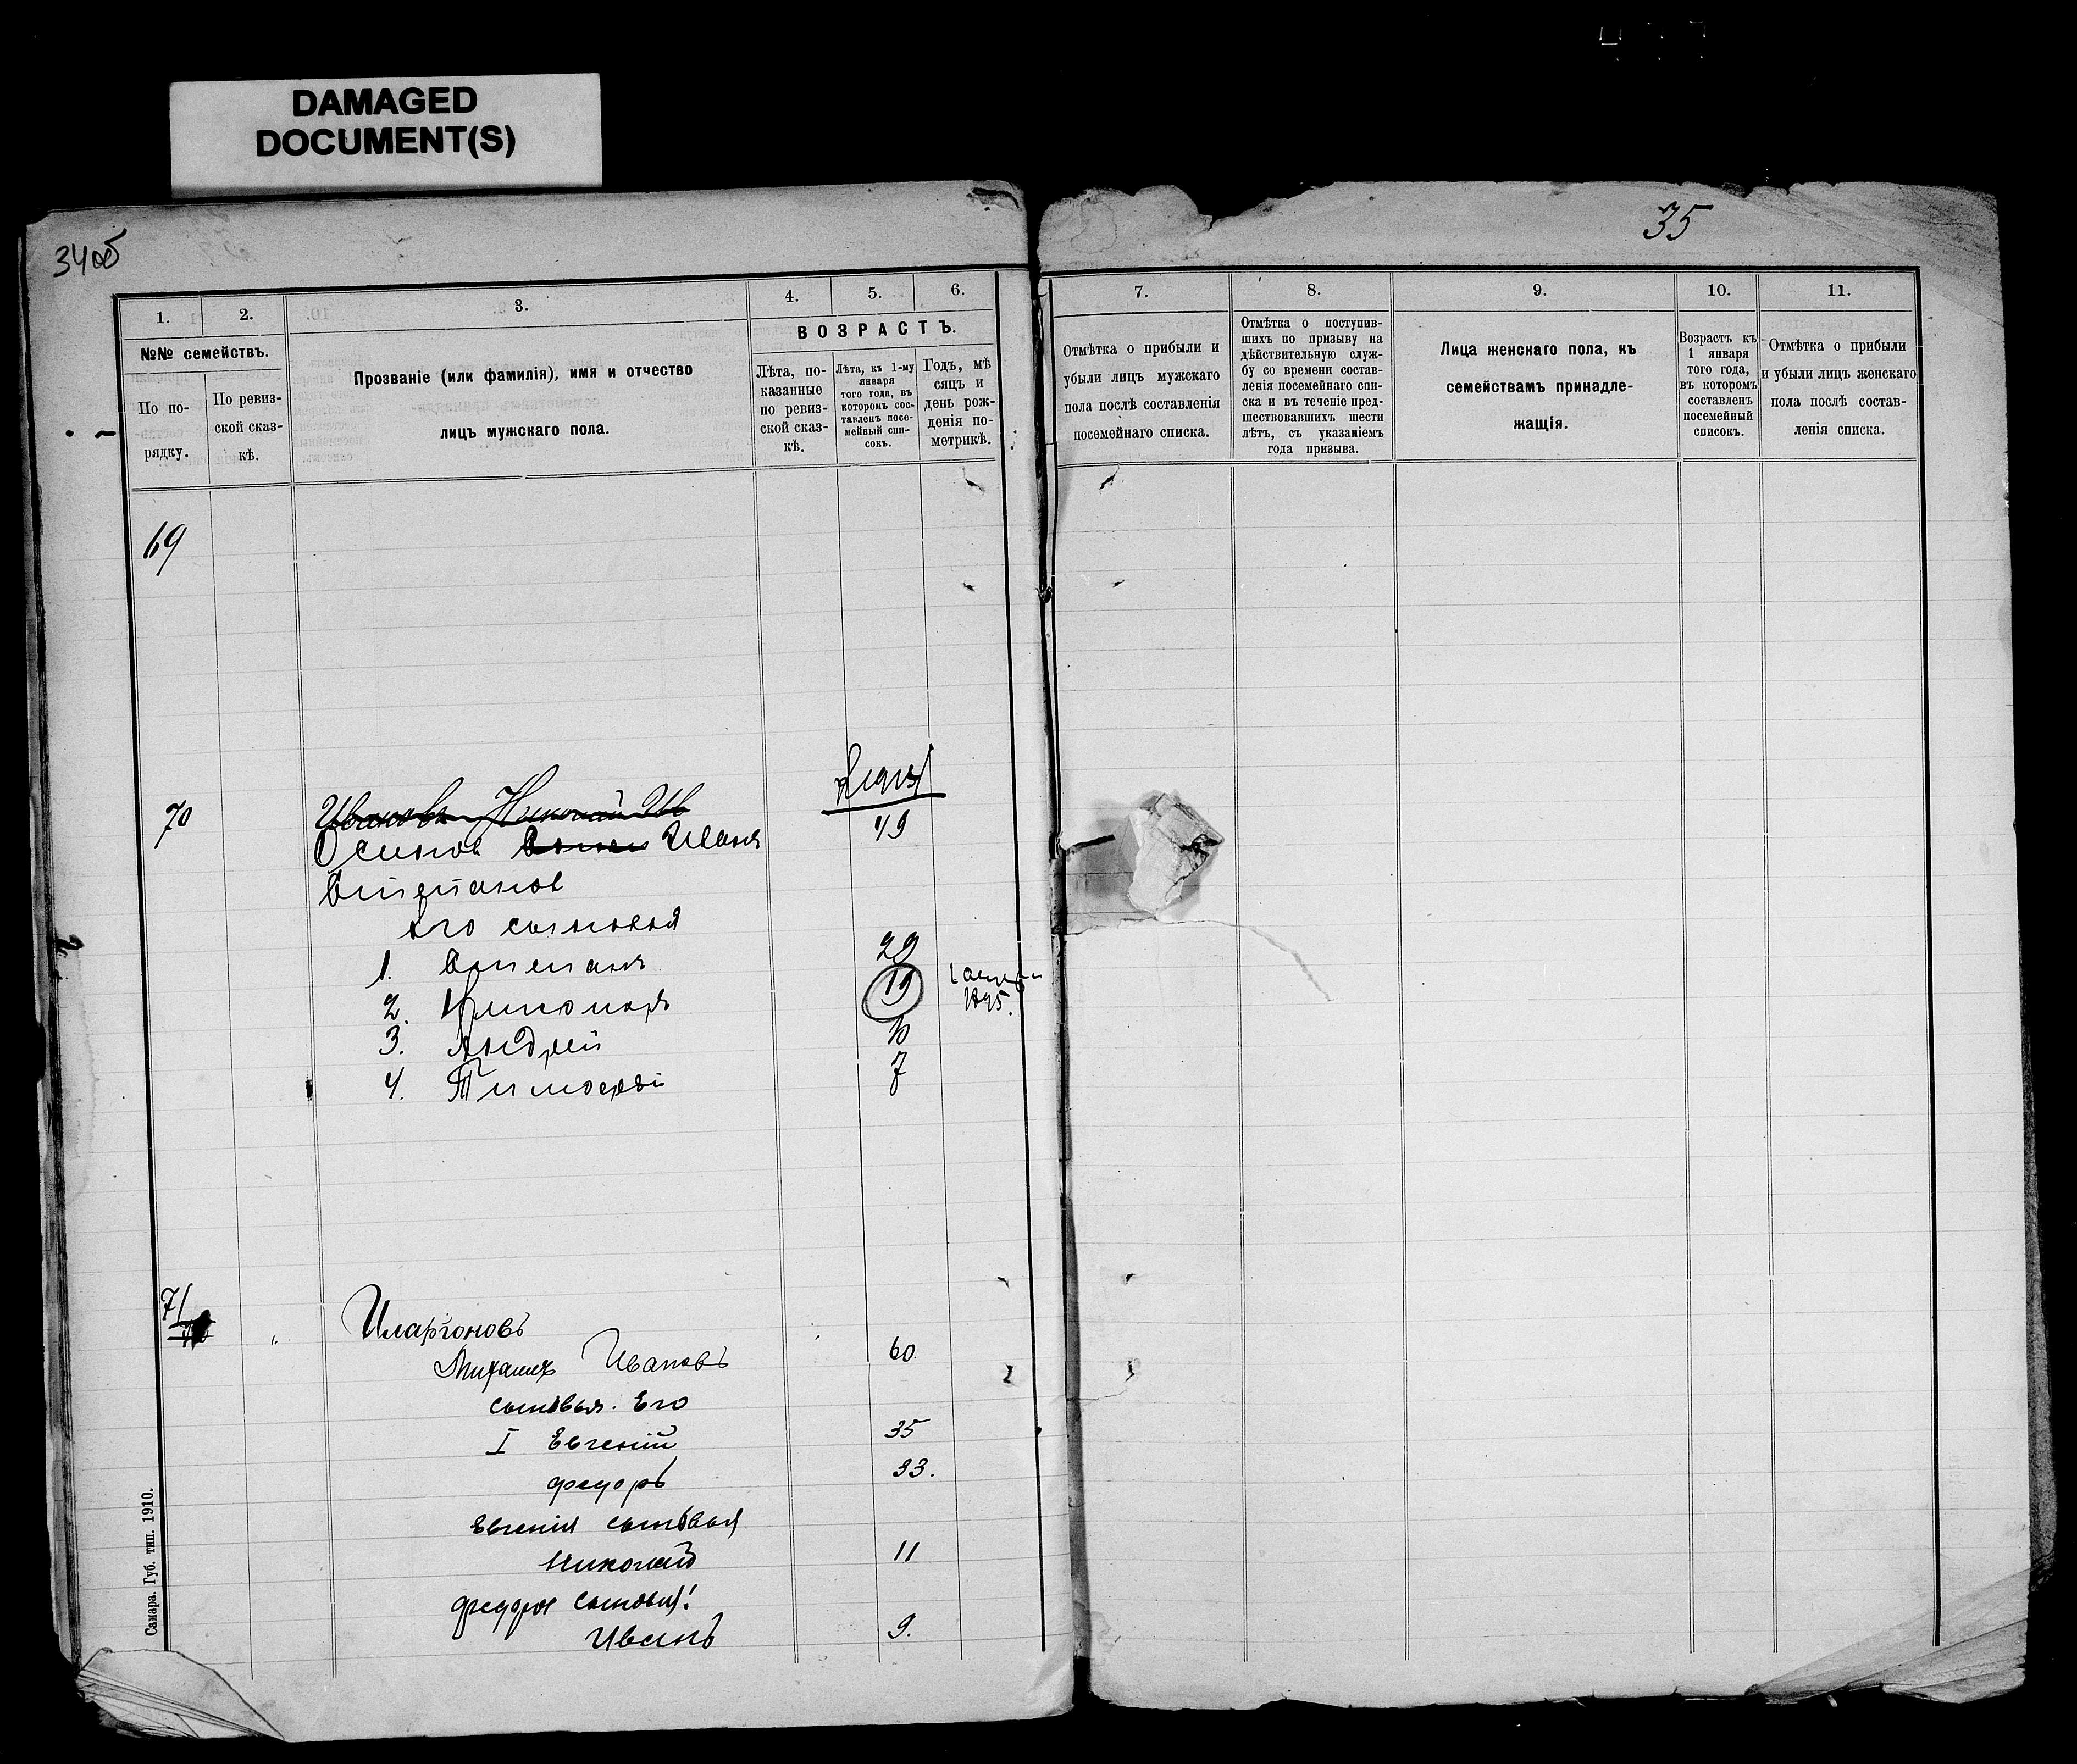 DAMAGED
DOCUMENT(S)
34об
35
1.
2.
3.
4.
5.
6.
№№ семействъ.
По по-
рядку.
По ревиз-
ской сказ-
кѣ.
Прозваніе (или фамилія), имя и отчество
лицъ мужскаго пола.
ВОЗРАСТЪ.
Лѣта, по-
казанные
по ревиз-
ской сказ-
кѣ.
Лѣта, къ 1-му
января
того года, въ
которомъ сос-
тавленъ посе-
мейный спи-
сокъ.
Годъ, мѣ
сяцъ и
день рож-
денія по-
метрикѣ.
7.
8.
9.
10.
11.
Отмѣтка о прибыли и
убыли лицъ мужскаго
пола послѣ составленія
посемейнаго списка.
Отмѣтка о поступив-
шихъ по призыву на
дѣйствительную служ-
бу со времени состав-
ленія посемейнаго спи-
ска и въ теченіе пред-
шествовавшихъ шести
лѣтъ, съ указаніемъ
года призыва.
Лица женскаго пола, къ
семействамъ принадле-
жащія.
Возрастъ къ
1 января
того года,
въ которомъ
составленъ
посемейный
списокъ.
Отмѣтка о прибыли
и убыли лицъ женскаго
пола послѣ состав-
ленія списка.
69
70 Ивановъ Николай Ив
Осипов Иванъ 49
Степанов
Его сыновья
1. Степанъ 29
2. 19 1895.
3. Андрей 10
4. Тимофей 7
71
Иларіоновъ
Михаилъ Ивановъ 60
сыновья Его
I Евгеній 35
Федоръ 33.
Евгенія сыновья
Николай 11
Федора сыновья:
Иванъ 9.
Самара. Губ. тип. 1910.